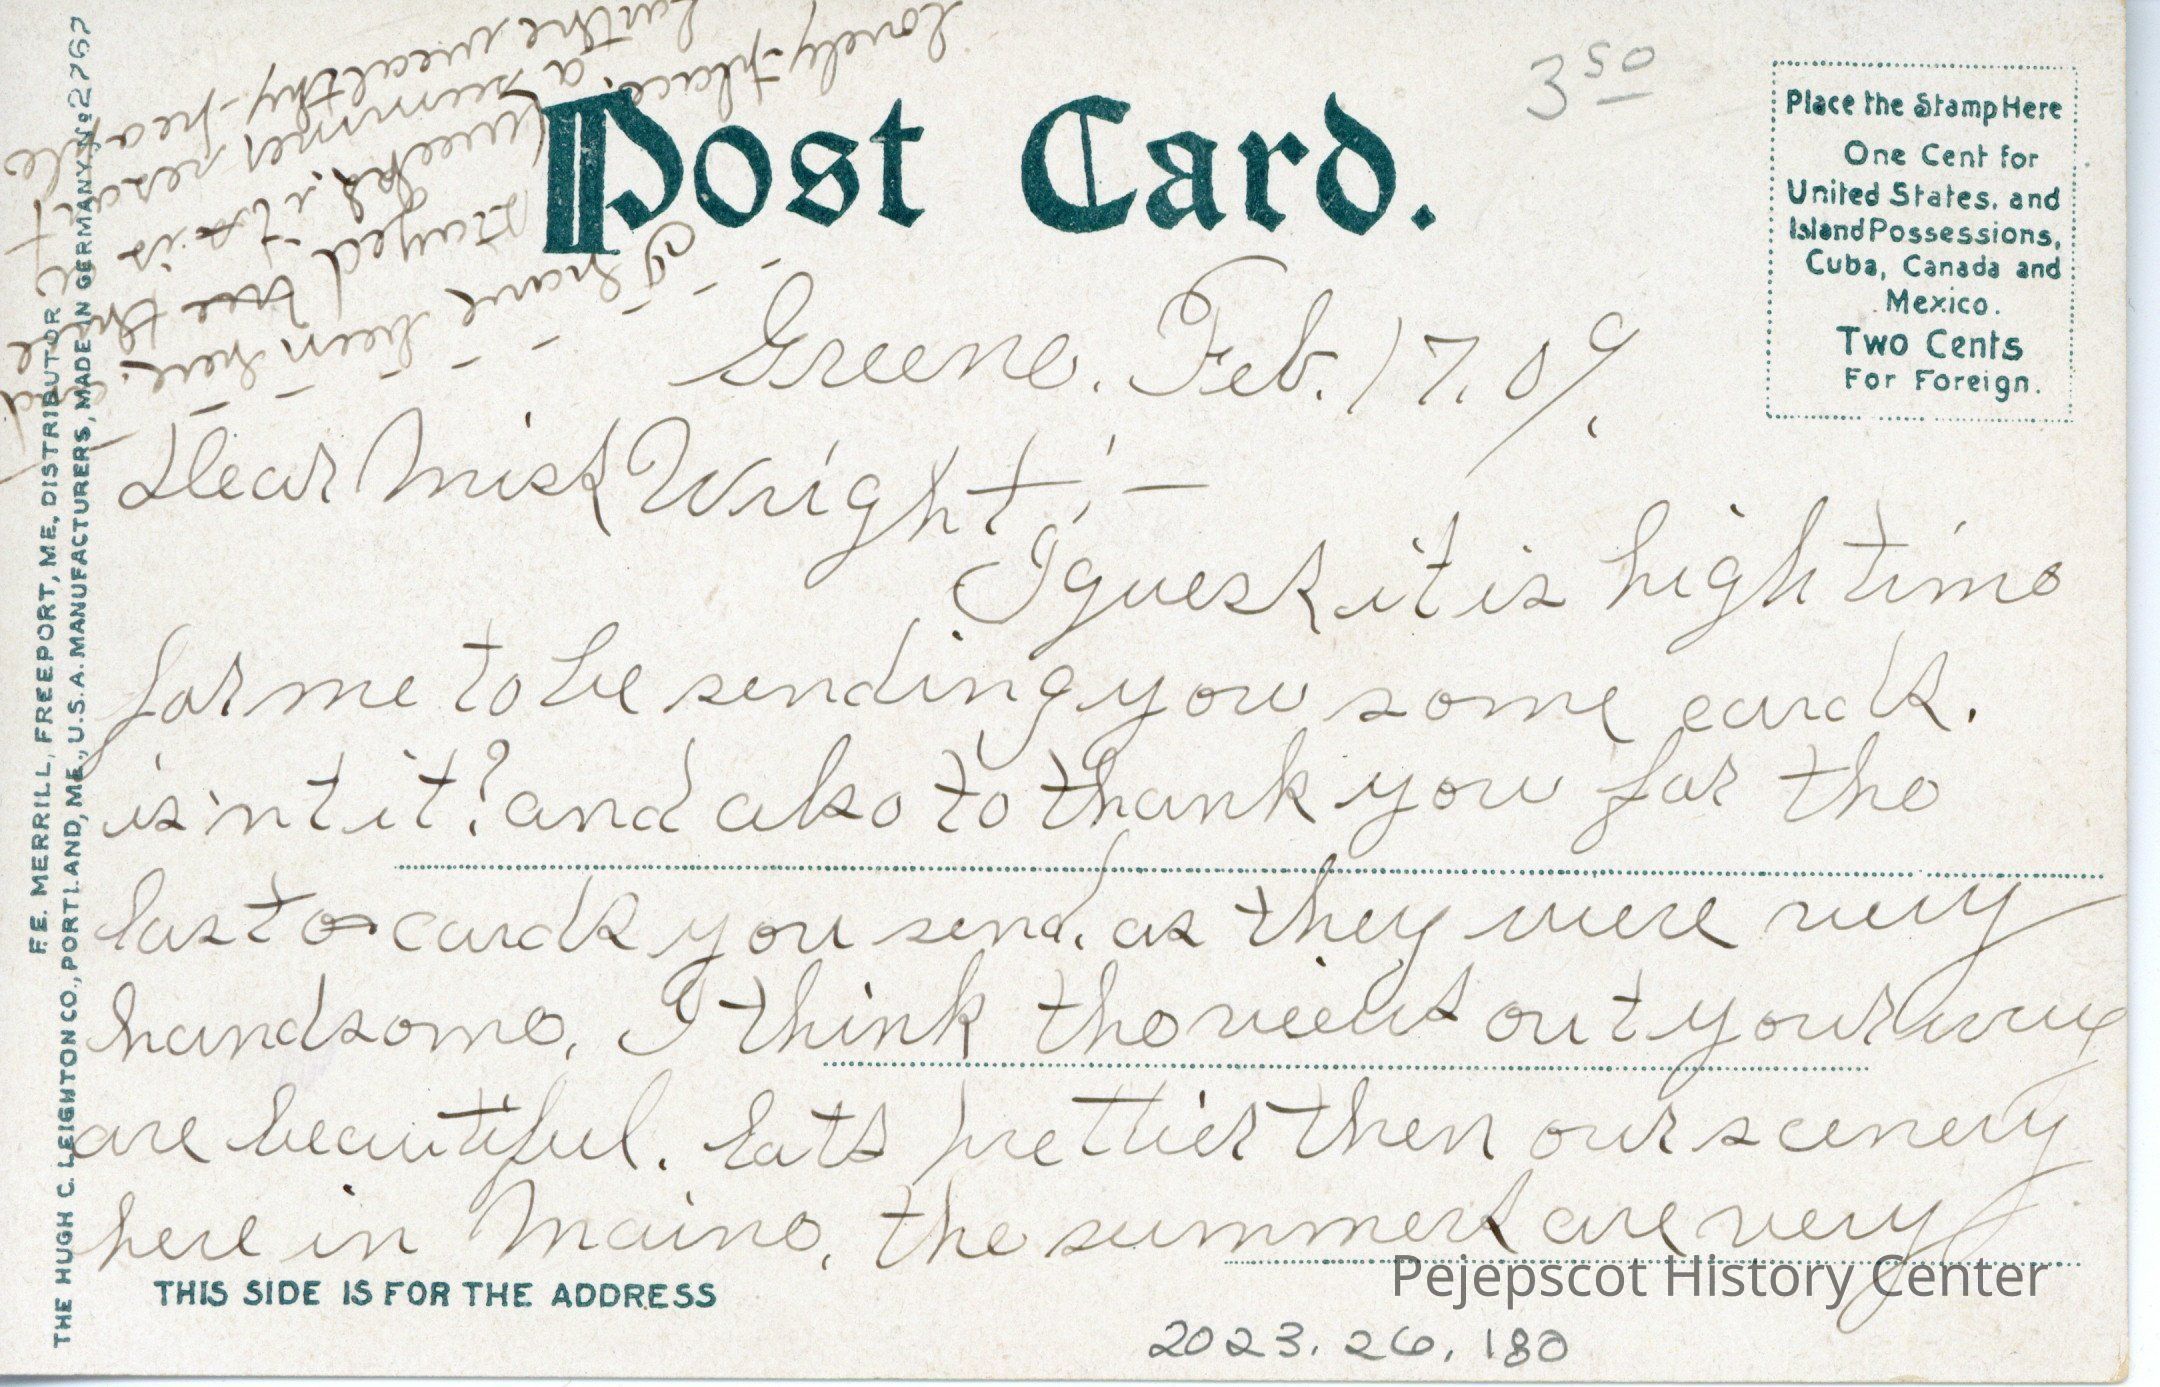 Post Card.
3 50
Place the Stamp Here
One Cent for
United States, and
Island Possessions,
Cuba, Canada and
Mexico.
Two Cents
For Foreign.
Greene. Feb. 17. 09.
Dear Miss Wright;—
I guess it is high time
for me to be sending you some cards.
is'nt it? and also to thank you for the
last cards you send. as they were very
handsome. I think the views out your way
are beautiful. lots prettier then our scenery
here in Maine. the summers are very
I have been here. and
stayed three
weeks. it is
lovely place. a summer resort
for the wealthy people
F. E. MERRILL, FREEPORT, ME, DISTRIBUTOR
THE HUGH C. LEIGHTON CO., PORTLAND, ME., U.S.A. MANUFACTURERS, MADE IN GERMANY, No 27767
THIS SIDE IS FOR THE ADDRESS
Pejepscot History Center
2023.26.180